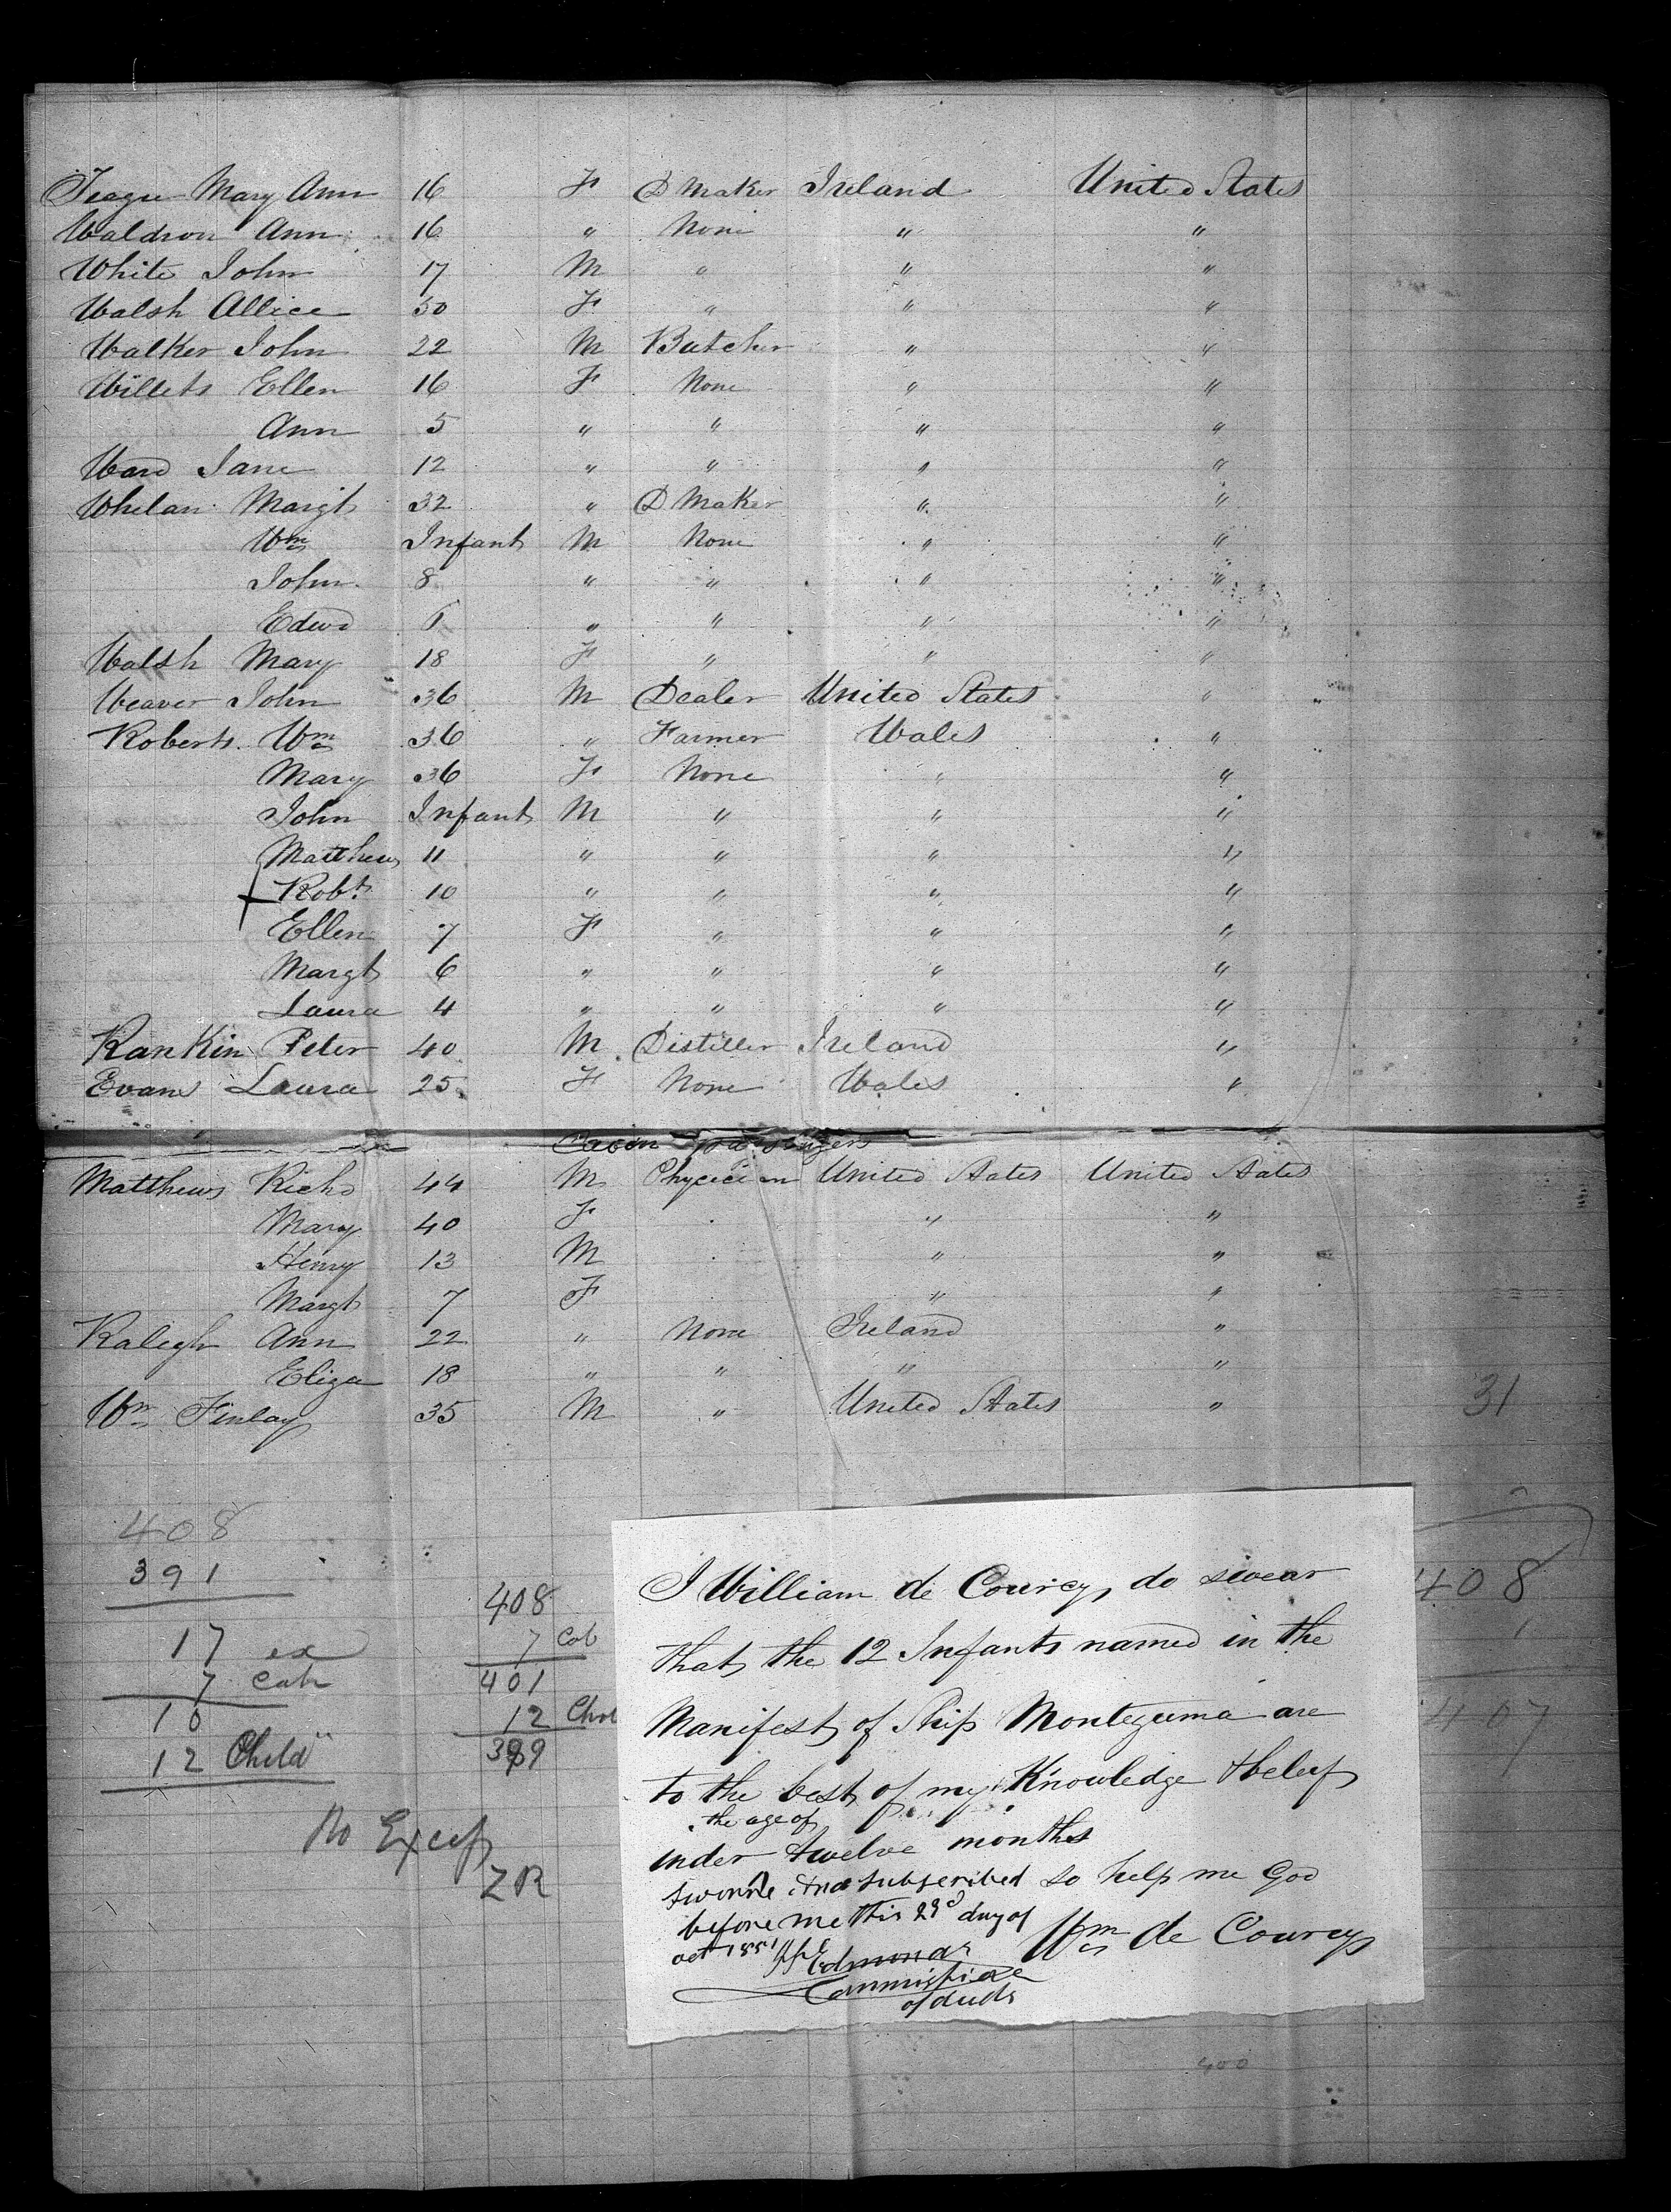 Teague Mary Ann 16 F D Maker Ireland United States
Waldron Ann 16 " None " "
White John 17 M " " "
Walsh Allice 30 F " " "
Walker John 22 M Butcher " "
Willets Ellen 16 F None " "
Ann 5 " " " "
Ward Jane 12 " " " "
Whelan Margt 32 " D Maker " "
Wm Infant M None " "
John 8 " " " "
Edwd 6 " " " "
Walsh Mary 18 F " " "
Weaver John 36 M Dealer United States "
Roberts Wm 36 " Farmer Wales "
Mary 36 F None " "
John Infant M " " "
Matthew 11 " " " "
Robt 10 " " " "
Ellen 7 F " " "
Margt 6 " " " "
Laura 4 " " " "
Rankin Peter 40 M Distiller Ireland "
Evans Laura 25 F None Wales "
Cabin Passengers
Matthews Richd 44 M Phycician United States United States
Mary 40 F " "
Henry 13 M " "
Margt 7 F " "
Raleigh Ann 22 " None Ireland "
Eliza 18 " " " "
Wm Finlay 35 M " United States "
31
408
391
17 ex
7 Cab
10
12 Child
408
7 Cab
401
12
389
No Excep
ZR
I William de Courcy, do swear
that the 12 Infants named in the
Manifest of Ship Montezuma are
to the best of my Knowledge & beleef
the age of
under twelve months
sworne and subscribed so help me God
before me this 29d day of
oct 1851 Edmonds Wm de Courcy
Commissioner
of deeds
408
1
407
400